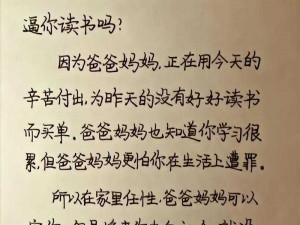 逼你读书吗?
因为爸爸妈妈,正在用今天的
辛苦付出,为昨天的没有好好读书
而买单。爸爸妈妈也知道你学习很
累,但爸爸妈妈更怕你在生活上遭罪。
所以在家里任性,爸爸妈妈可以